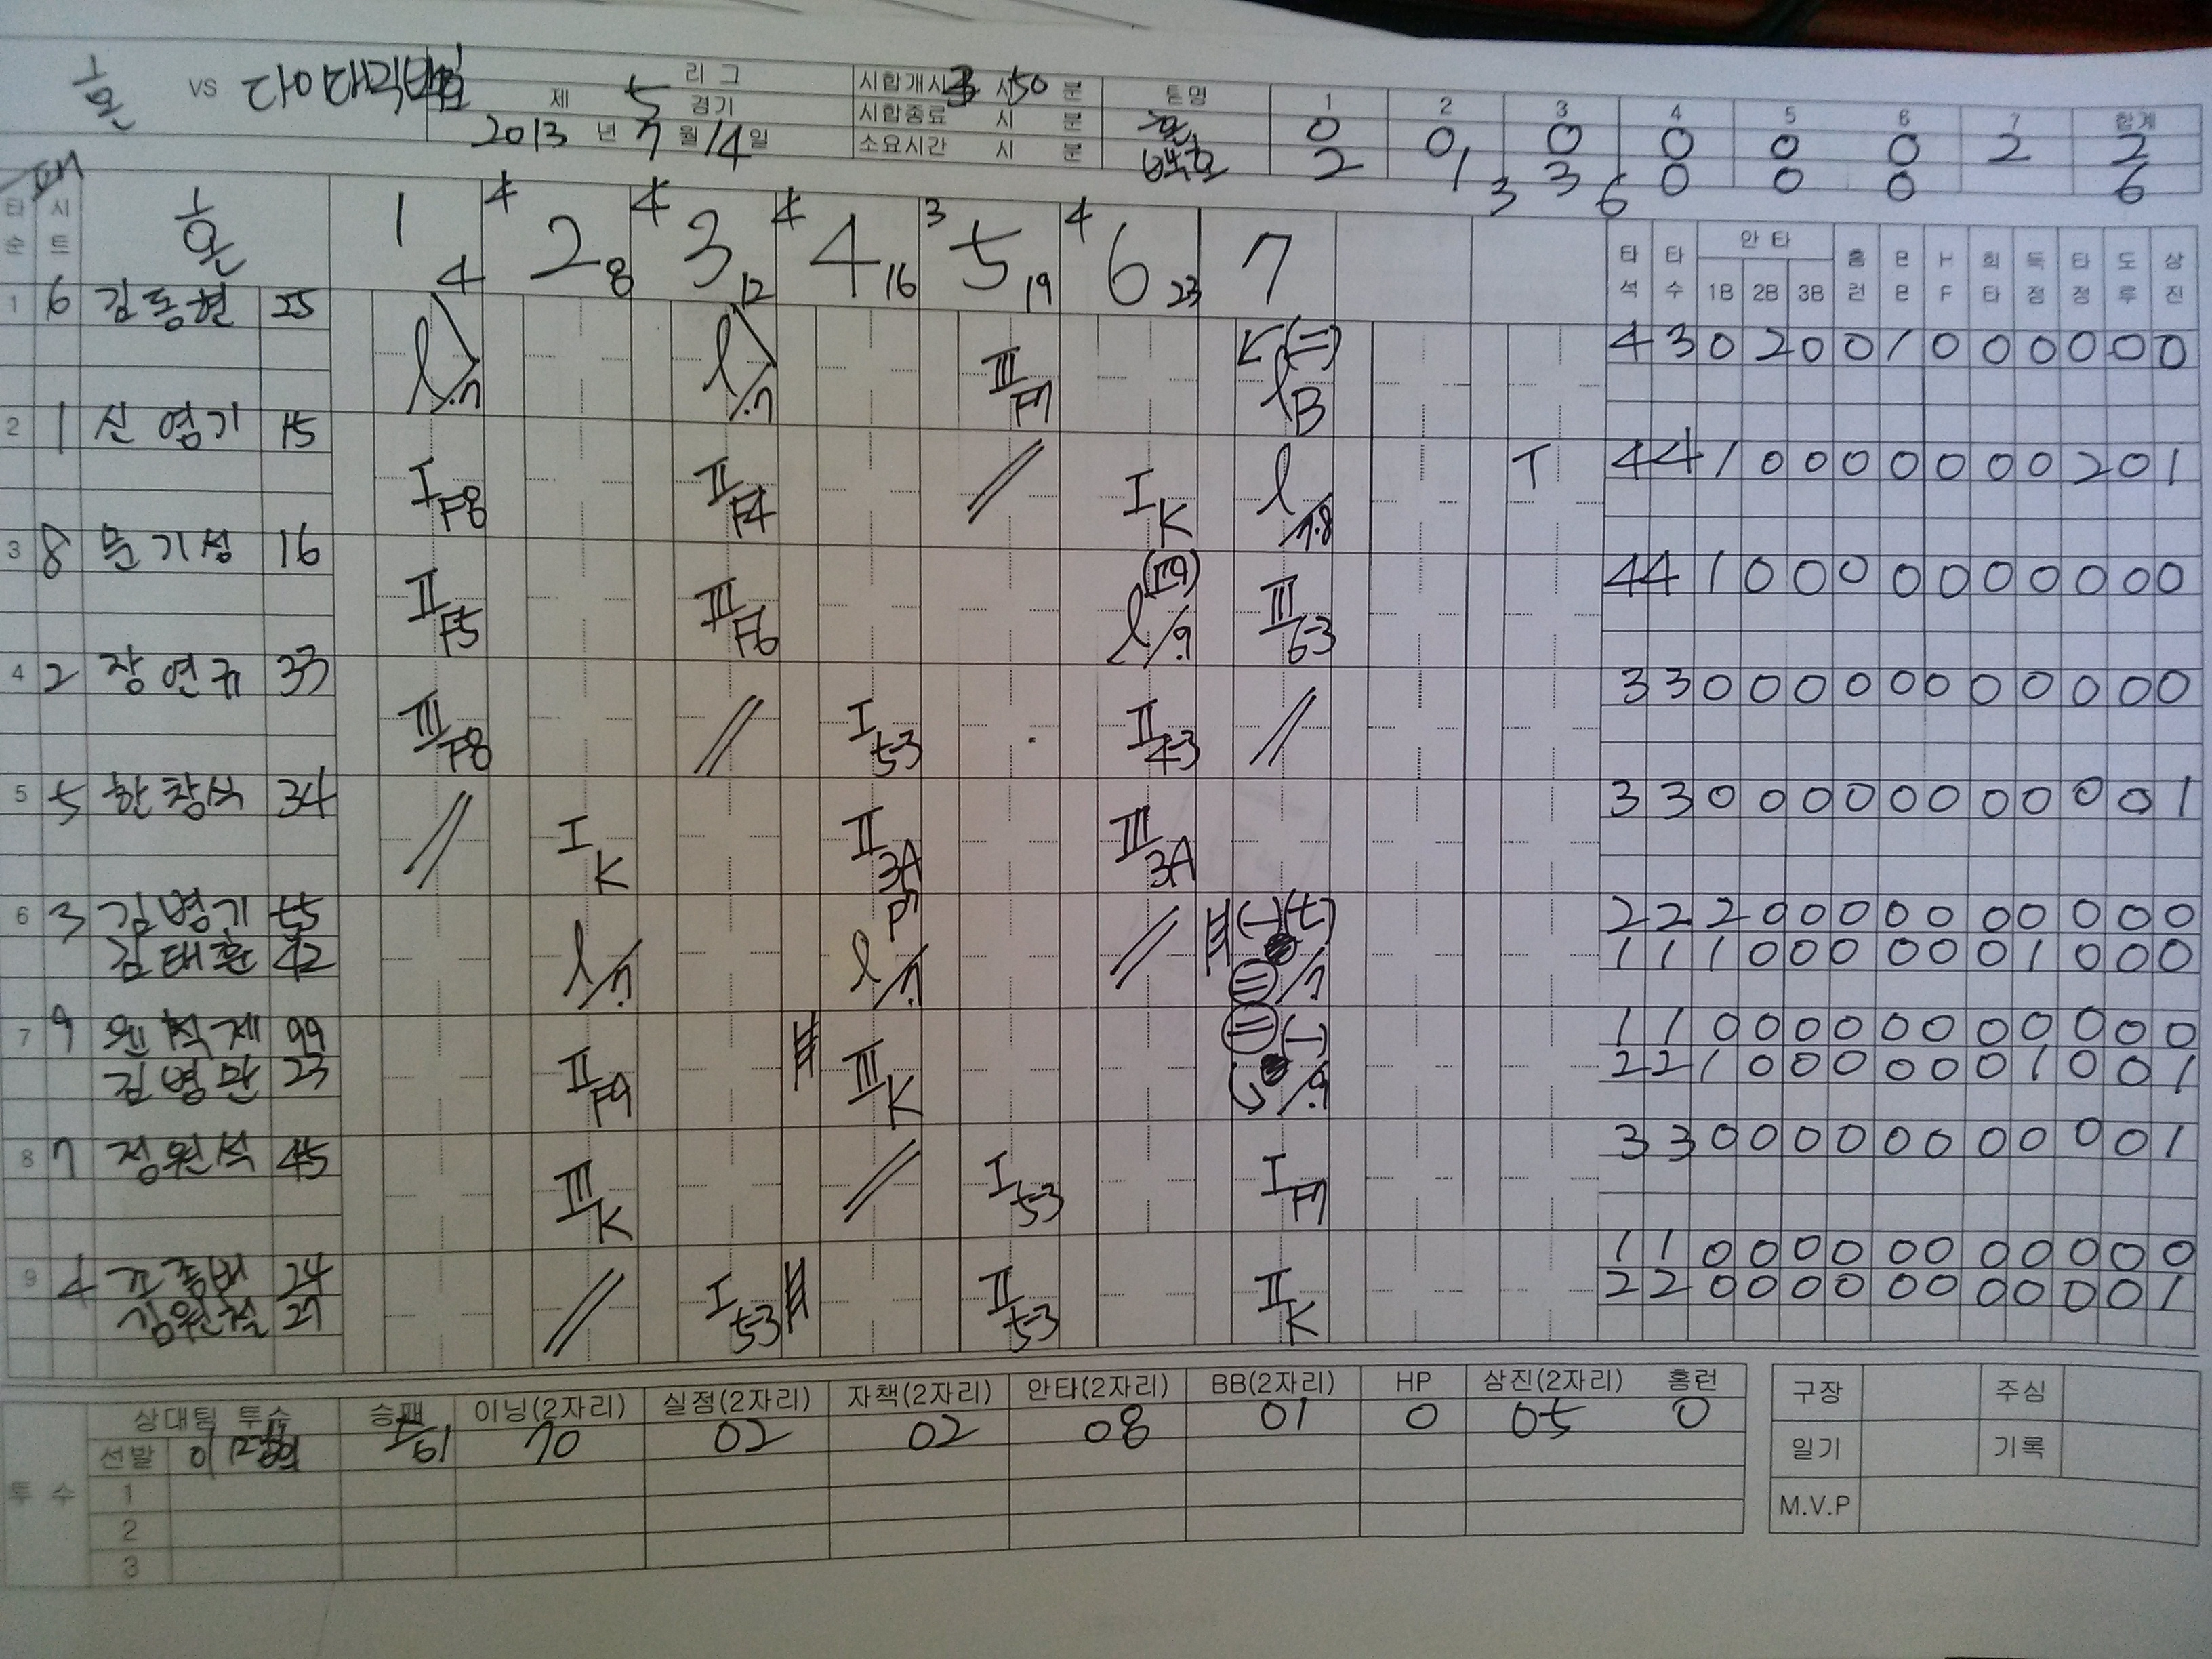 혼 VS
리그
시합개시 시 50 분
팀명 1 2 3 4 5 6 7 합계
제 5 경기
시합종료 시 분
0 0 0 0 0 0 2 2
2013 년 7 월 14 일
소요시간 시 분
백호 2 1 3 0 0 0 6
3 6
타순 시트 혼
1 4
4 2 8
4 3 12
4 4 16
3 5 19
4 6 23
7
타석 타수 안타 1B 2B 3B 홈런 BB HF 희타 득점 타점 도루 삼진
1 6 김동현 25
l /.7 l /.7 III F7 (二) l B
4 3 0 2 0 0 1 0 0 0 0 0 0
2 1 신영기 15
I F8 II F4 // I K l /7.8 T
4 4 1 0 0 0 0 0 0 0 2 0 1
3 8 문기성 16
II F5 III F6 l /.9 III 6-3
4 4 1 0 0 0 0 0 0 0 0 0 0
4 2 장연규 33
III F8 // I 5-3 II 4-3 //
3 3 0 0 0 0 0 0 0 0 0 0 0
5 5 한창석 34
// I K II 3A III 3A
3 3 0 0 0 0 0 0 0 0 0 0 1
6 3 김병기 55
2 2 2 0 0 0 0 0 0 0 0 0 0
김태훈 42
l /7. l /7. //
1 1 1 0 0 0 0 0 0 1 0 0 0
7 9 99
1 1 0 0 0 0 0 0 0 0 0 0 0
김병만 23
II F9 III K /.9
2 2 1 0 0 0 0 0 0 1 0 0 1
8 7 정원석 45
III K // I 5-3 I F7
3 3 0 0 0 0 0 0 0 0 0 0 1
9 4 24
1 1 0 0 0 0 0 0 0 0 0 0 0
김원철 27
// I 5-3 II 5-3 II K
2 2 0 0 0 0 0 0 0 0 0 0 1
상대팀 투수 승패 이닝(2자리) 실점(2자리) 자책(2자리) 안타(2자리) BB(2자리) HP 삼진(2자리) 홈런
선발 70 02 02 08 01 0 05 0
투수
1
2
3
구장 주심
일기 기록
M.V.P